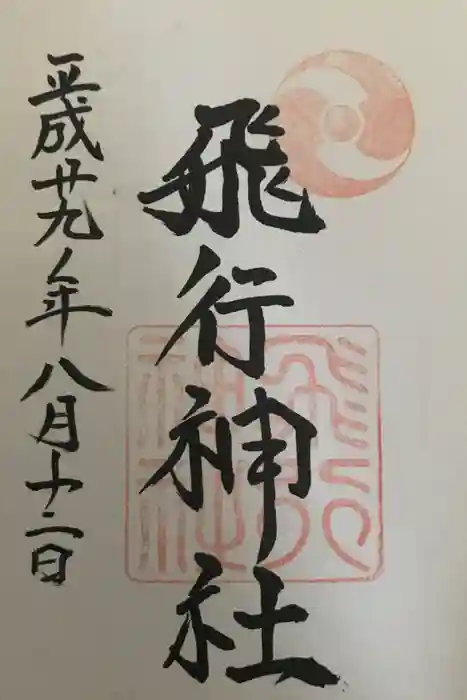 飛行神社
平成廿九年八月十二日
飛行
神社